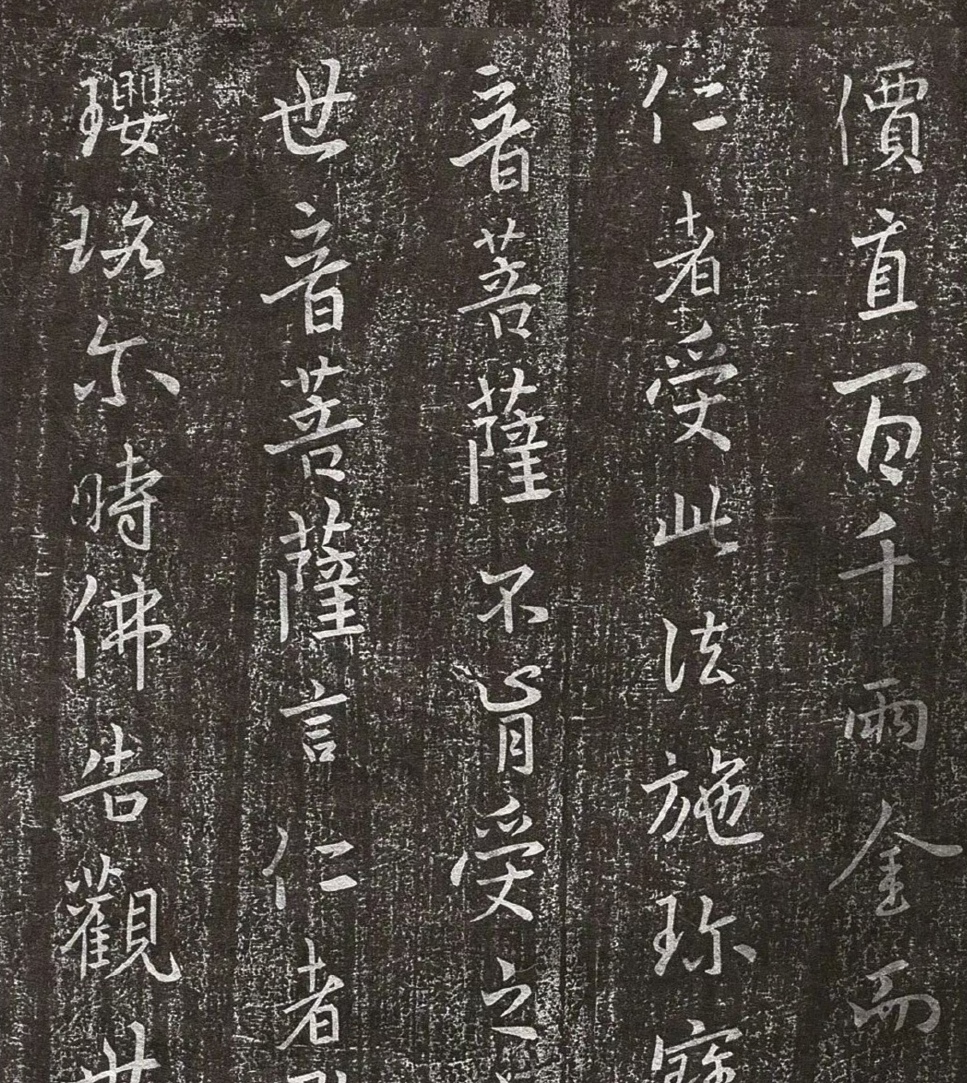 價直百千兩金而
仁者受此法施珍寶
音菩薩不肯受之
世音菩薩言仁者
瓔珞尒時佛告觀世